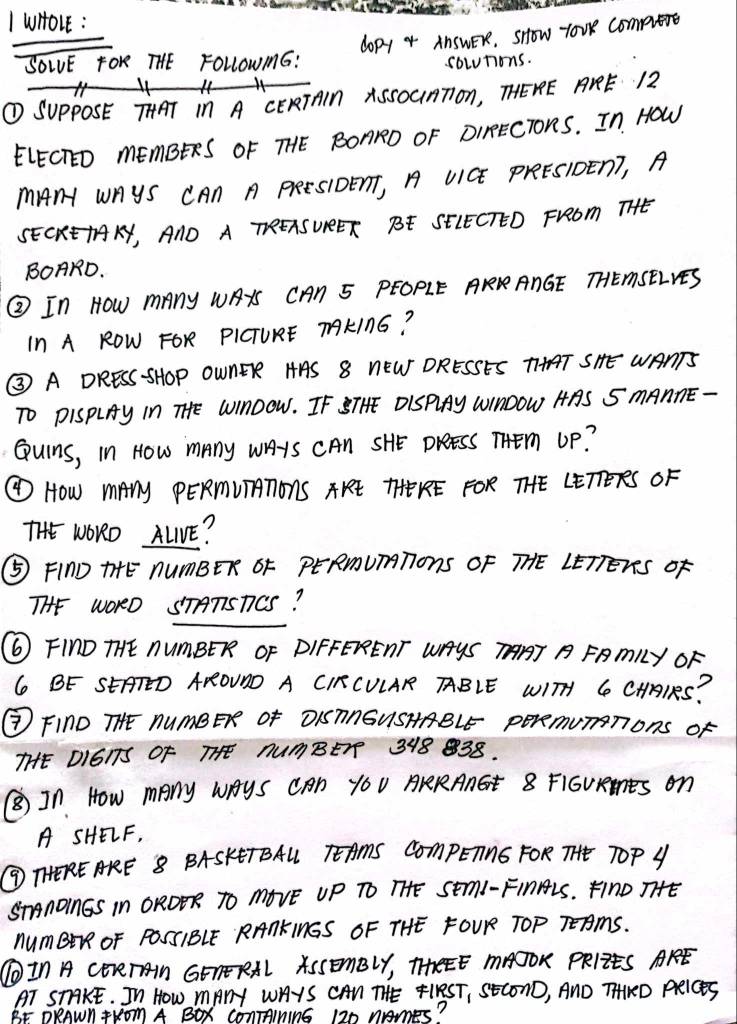 1 WHOLE :
COPY & ANSWER. SHOW YOUR COMPLETE
SOLUTIONS.
SOLVE FOR THE FOLLOWING:
① SUPPOSE THAT IN A CERTAIN ASSOCIATION, THERE ARE 12
ELECTED MEMBERS OF THE BOARD OF DIRECTORS. IN HOW
MANY WAYS CAN A PRESIDENT, A VICE PRESIDENT, A
SECRETARY, AND A TREASURER BE SELECTED FROM THE
BOARD.
② IN HOW MANY WAYS CAN 5 PEOPLE ARRANGE THEMSELVES
IN A ROW FOR PICTURE TAKING?
③ A DRESS-SHOP OWNER HAS 8 NEW DRESSES THAT SHE WANTS
TO DISPLAY IN THE WINDOW. IF THE DISPLAY WINDOW HAS 5 MANNE-
QUINS, IN HOW MANY WAYS CAN SHE DRESS THEM UP?
④ HOW MANY PERMUTATIONS ARE THERE FOR THE LETTERS OF
THE WORD ALIVE?
⑤ FIND THE NUMBER OF PERMUTATIONS OF THE LETTERS OF
THE WORD STATISTICS?
⑥ FIND THE NUMBER OF DIFFERENT WAYS THAT A FAMILY OF
6 BE SEATED AROUND A CIRCULAR TABLE WITH 6 CHAIRS?
⑦ FIND THE NUMBER OF DISTINGUISHABLE PERMUTATIONS OF
THE DIGITS OF THE NUMBER 348 838.
⑧ IN HOW MANY WAYS CAN YOU ARRANGE 8 FIGURINES ON
A SHELF.
⑨ THERE ARE 8 BASKETBALL TEAMS COMPETING FOR THE TOP 4
STANDINGS IN ORDER TO MOVE UP TO THE SEMI-FINALS. FIND THE
NUMBER OF POSSIBLE RANKINGS OF THE FOUR TOP TEAMS.
⑩ IN A CERTAIN GENERAL ASSEMBLY, THREE MAJOR PRIZES ARE
AT STAKE. IN HOW MANY WAYS CAN THE FIRST, SECOND, AND THIRD PRICES
BE DRAWN FROM A BOX CONTAINING 120 NAMES?